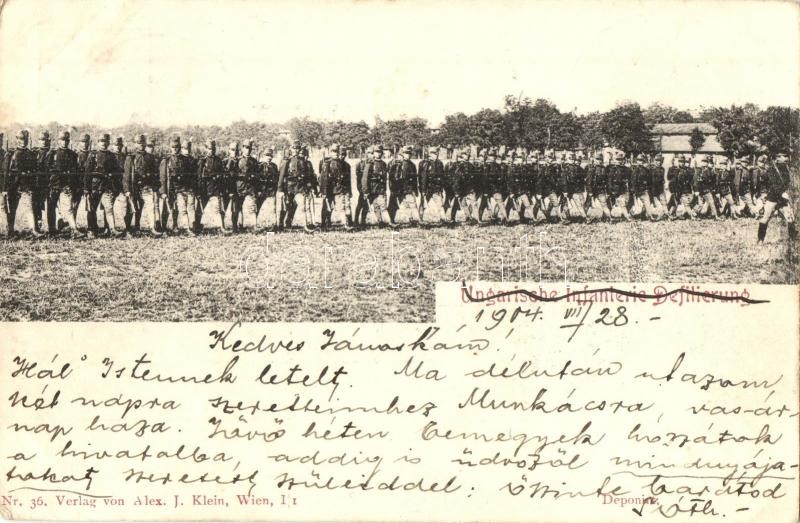 darabanth
Ungarische Infanterie Defilierung
1904. VII/28. -
Kedves Jánoskám!
Hál' Istennek letelt. Ma délután utazom
két napra szeretteimhez Munkácsra, vasár-
nap haza. Jövő héten bemegyek hozzátok
a hivatalba, addig is üdvözöl mindnyája-
tokat szeretett szüleiddel: őszinte barátod
Nr. 36. Verlag von Alex. J. Klein, Wien, I/1
Deponirt.
Tóth. -